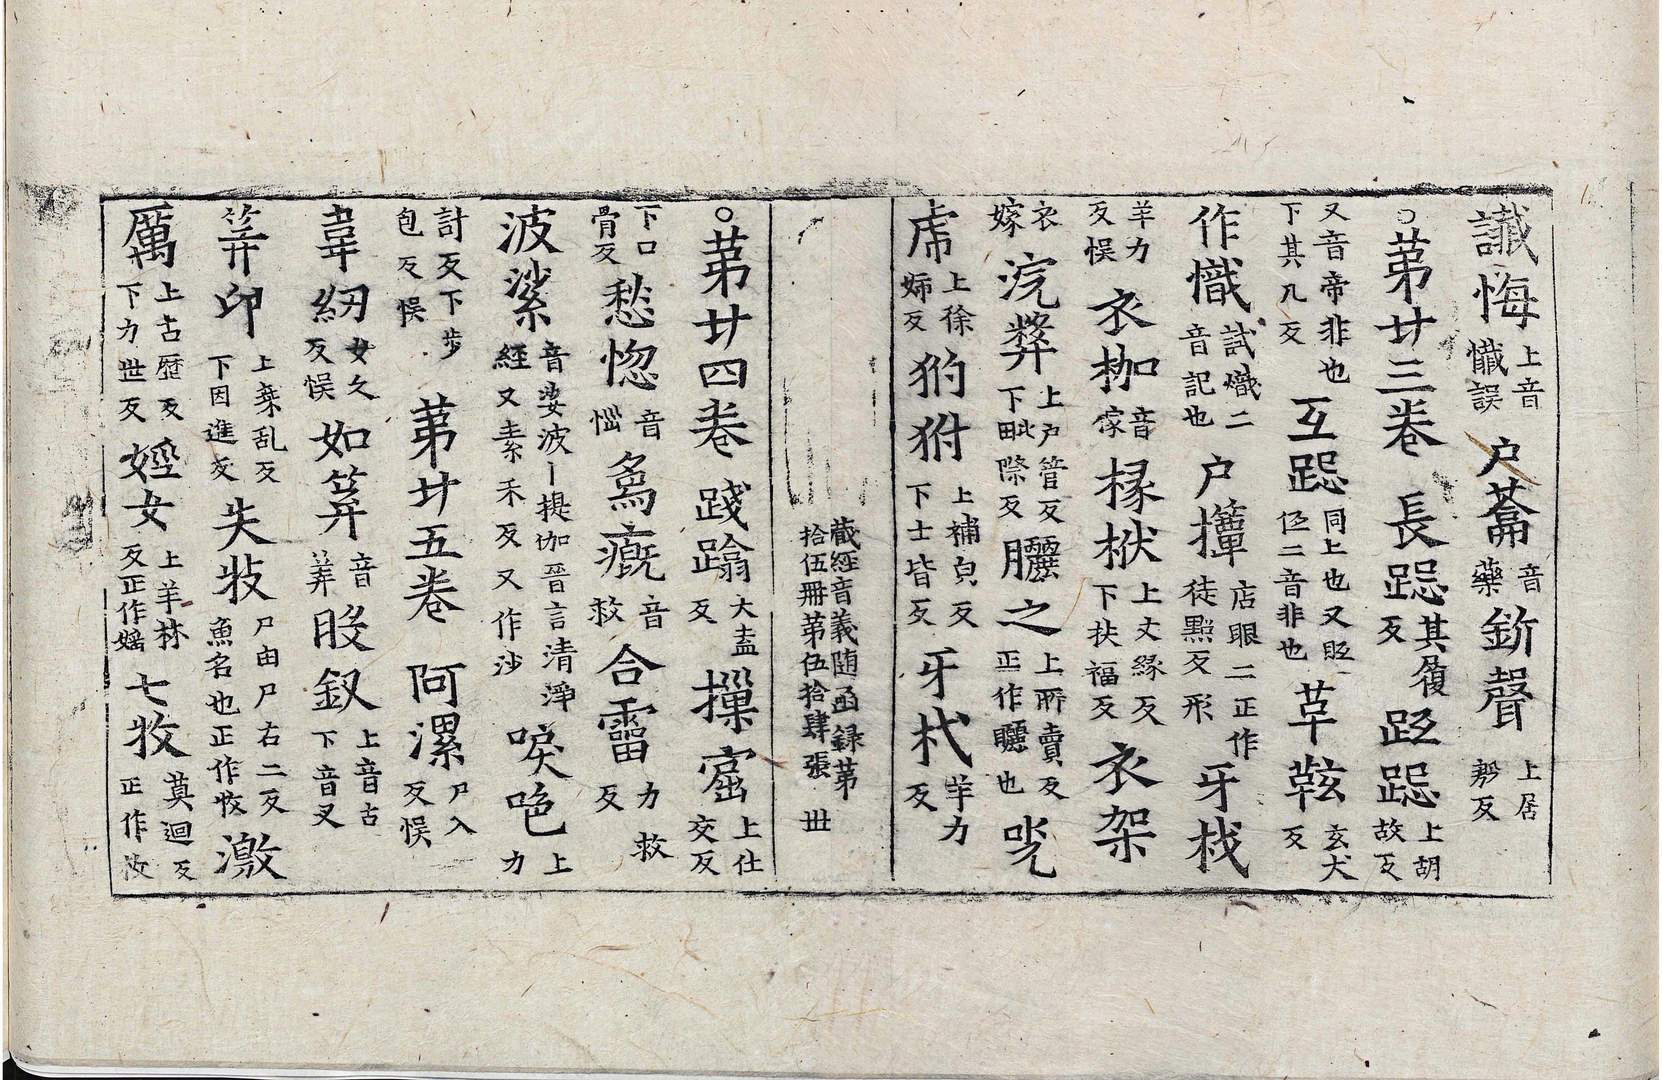 懴悔上音懴誤 户蘥音藥 釿聲上居靳反
○第廿三卷 長跽其履反 跽上胡故反
又音帝非也下其几反 互跽同上也又𣅳二音非也 草鞋玄犬反
作幟試熾二音記也 户撣店眼二正作徒點反形 牙栈
羊力反悮 衣枷音嫁 椽栿上丈緣反下扶福反 衣架
衣嫁 浣上户管反下毗際反 之上所賣反正作曬也 咣
上徐姉反 犳犲上補皃反下士皆反 牙杙羊力反
藏經音義随函録第拾伍冊第伍拾肆張 丗
○第廿四卷 踐蹹大盍反 摷窟上仕交反
下口骨反 愁惚音惱 為溉音救 合霤力救反
波娑音婆波丨提伽晉言清淨經又素禾反又作沙 唳唈上力
計反下步包反悮 第廿五卷 阿漯尸入反悮
韋紉女久反悮 如筭音筭 股釵上音古下音叉
筭印上桒乱反下因進反 失牧尸由尸右二反魚名也正作收 激
厲上古歷反下力世反 婬女上羊林反正作婬 七枚莫迴反正作枚